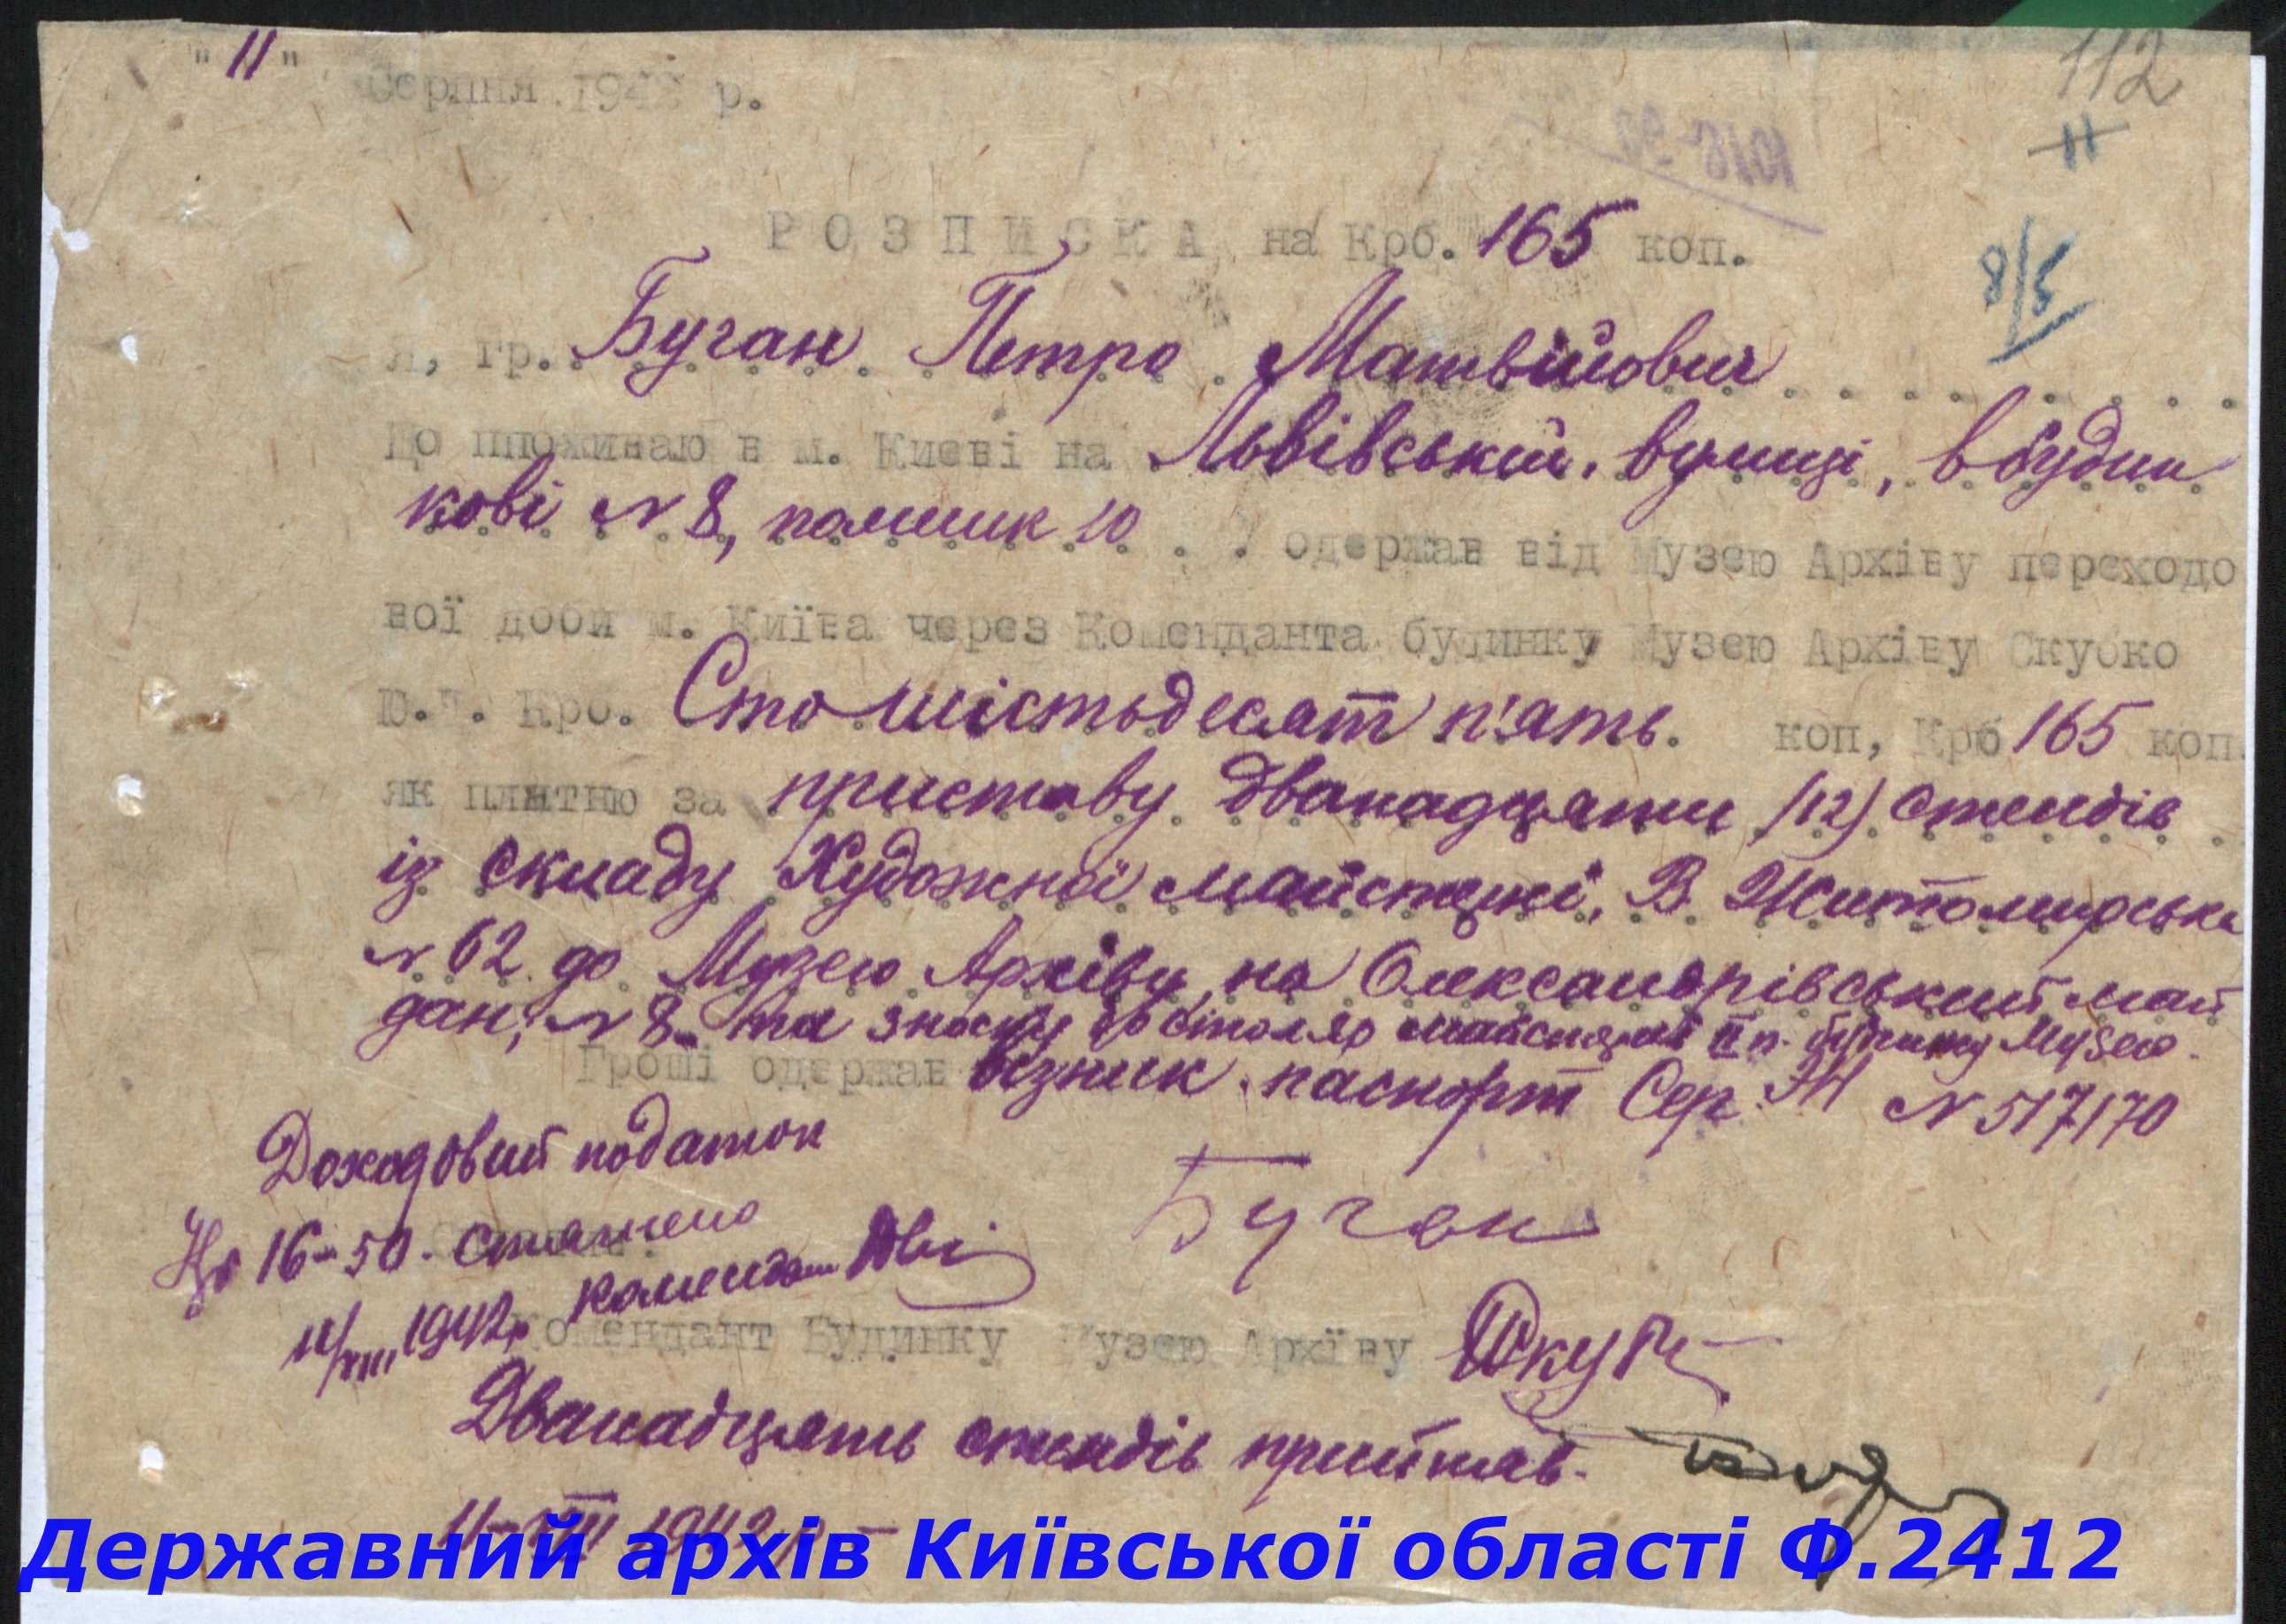 112
"11" Серпня 1942 р.
11
1018-30
РОЗПИСКА на Крб. 165 коп.
8/5
Я, гр. Буган Петро Матвійович
Що проживаю в м. Києві на Львівській вулиці, в будин
кові № 8, помешк 10 одержав від Музею Архіву переходо
вої доби м. Київа через Коменданта будинку Музею Архіву Скубко
Крб. Сто шістьдесят п'ять. коп, Крб 165 коп.
як платню за приставу дванадцяти /12/ стендів
із складу Художньої майстерні, В. Житомирська
№ 62 до Музею Архіву, на Олександрівський май
дан, № 8 та зноску до столяр майстерні II п. будинку Музею.
Гроші одержав візник. паспорт Сер. ЖН № 517170
Доходовий податок
16-50. стягнено
Буган
комендант
11/VIII 1942р
Комендант Будинку Музею Архіву
Дванадцять стендів прийняв.
11-VIII 1942р
Державний архів Київської області Ф.2412